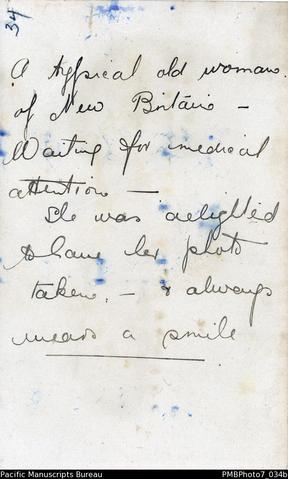 34
A typical old woman.
of New Britain –
Waiting for medical
attention –
She was delighted
to have her photo
taken. – & always
wears a smile
Pacific Manuscripts Bureau
PMBPhoto7_034b